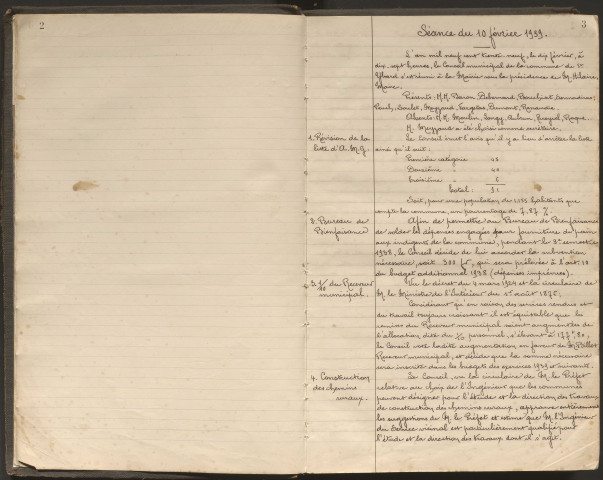 2
3
Séance du 10 février 1939.
L'an mil neuf cent trente-neuf, le dix février, à
dix-sept heures, le Conseil municipal de la commune de St
s'est réuni à la Mairie sous la présidence de M. Hilaire,
Maire.
Présents: M.M. Baron,
Absents: M.M. Moulin,
M. a été choisi comme secrétaire.
1. Révision de la
liste d'A.M.G.
Le Conseil émet l'avis qu'il y a lieu d'arrêter la liste
ainsi qu'il suit:
Première catégorie
Deuxième "
Troisième "
total:
Soit, pour une population de habitants que
compte la commune, un pourcentage de 7,87 %.
2. Bureau de
Bienfaisance
Afin de permettre au Bureau de Bienfaisance
de solder les dépenses engagées pour fourniture de pain
aux indigents de la commune, pendant le 2e semestre
1938, le Conseil décide de lui accorder la subvention
nécessaire, soit 300 fr, qui sera prélevée à l'art. 10
du budget additionnel 1938 (dépenses imprévues).
3. 1/10 du Receveur
municipal.
Vu le décret du 4 mars 1924 et la circulaire de
M. le Ministre de l'Intérieur du 1er août 1875;
Considérant qu'en raison des services rendus et
du travail toujours croissant il est équitable que les
remises du Receveur municipal soient augmentées de
l'allocation dite du 1/10 personnel, s'élevant à 177,80,
le Conseil vote ladite augmentation en faveur de M.
Receveur municipal, et décide que la somme nécessaire
sera inscrite dans les budgets des exercices 1939 et suivants.
4. Construction
des chemins
ruraux.
Le Conseil, vu la circulaire de M. le Préfet
relative au choix de l'Ingénieur que les communes
peuvent désigner pour l'étude et la direction des travaux
de construction des chemins ruraux, approuve entièrement
les suggestions de M. le Préfet et estime que M. l'Ingénieur
du Service vicinal est particulièrement qualifié pour
l'étude et la direction des travaux dont il s'agit.